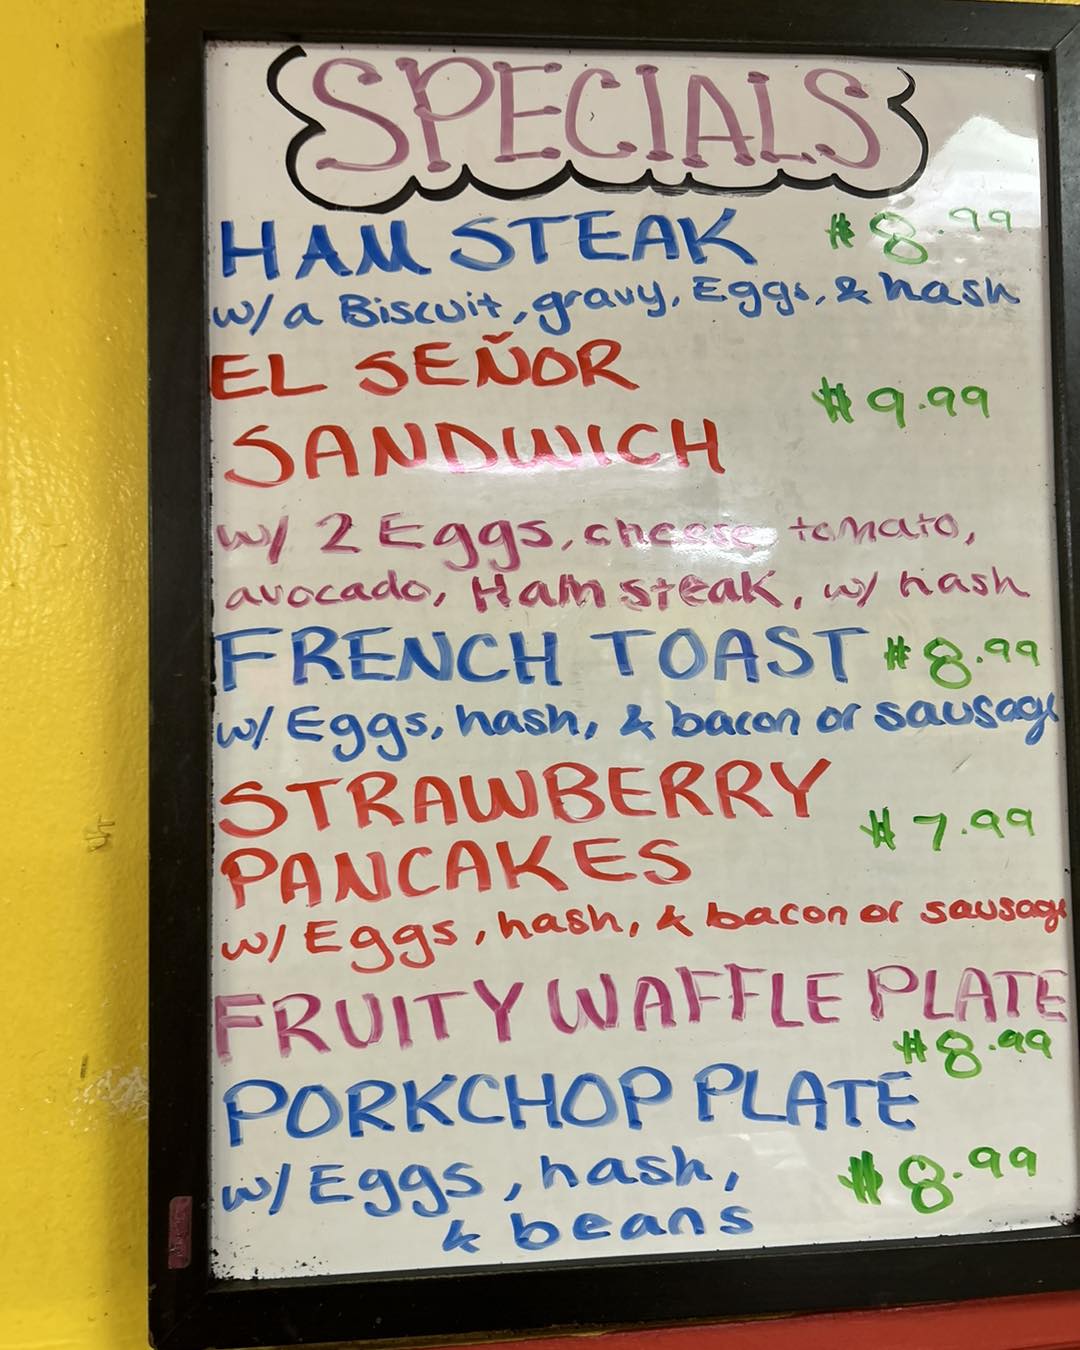 SPECIALS
HAM STEAK $8.99
w/ a Biscuit, gravy, Eggs, & hash
EL SEÑOR
$9.99
SANDWICH
w/ 2 Eggs, cheese tomato,
avocado, Ham steak, w/ hash
FRENCH TOAST $8.99
w/ Eggs, hash, & bacon or sausage
STRAWBERRY
$7.99
PANCAKES
w/ Eggs, hash, & bacon or sausage
FRUITY WAFFLE PLATE
$8.99
PORKCHOP PLATE
w/ Eggs, hash, $8.99
& beans